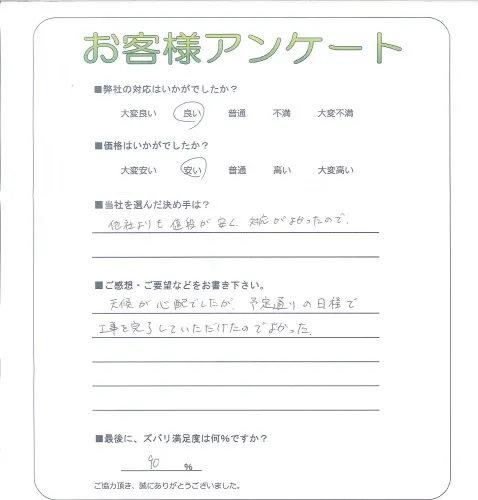 お客様アンケート
■弊社の対応はいかがでしたか？
大変良い 良い 普通 不満 大変不満
■価格はいかがでしたか？
大変安い 安い 普通 高い 大変高い
■当社を選んだ決め手は？
他社よりも値段が安く、対応がよかったので。
■ご感想・ご要望などをお書き下さい。
天候が心配でしたが、予定通りの日程で
工事を完了していただけたのでよかった。
■最後に、ズバリ満足度は何％ですか？
90 ％
ご協力頂き、誠にありがとうございました。